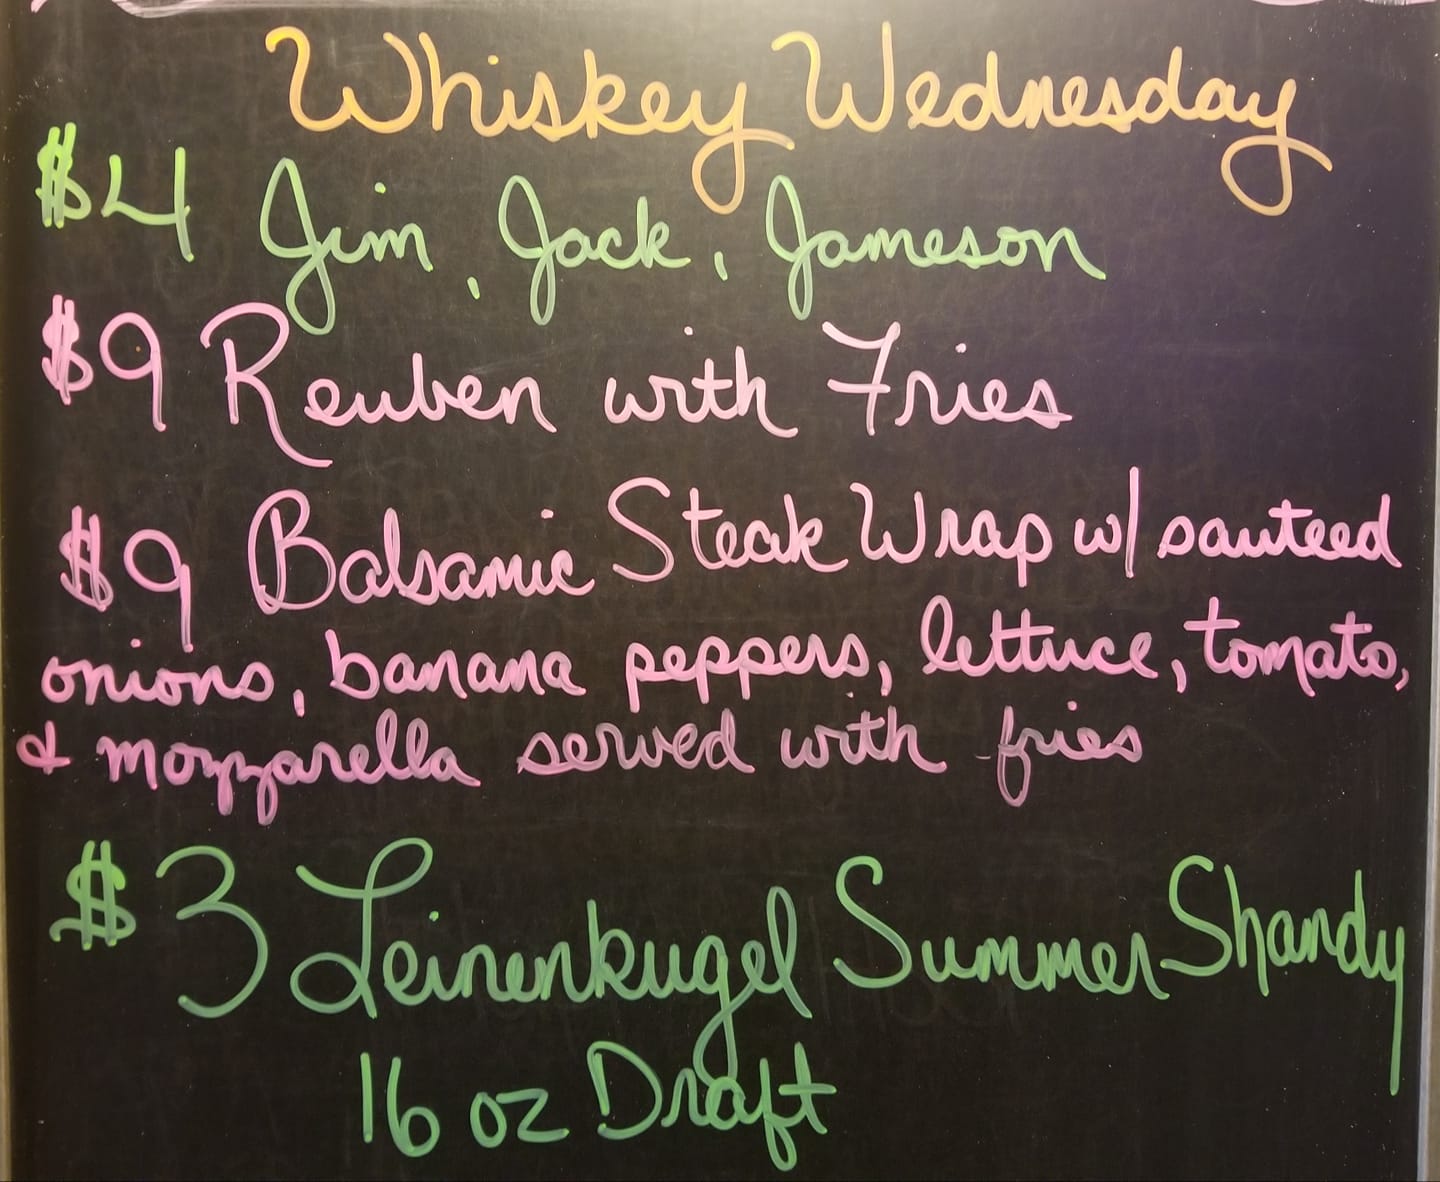 Whiskey Wednesday
$4 Jim, Jack, Jameson
$9 Reuben with Fries
$9 Balsamic Steak Wrap w/ sauteed
onions, banana peppers, lettuce, tomato,
& mozzarella served with fries
$3 Leinenkugel Summer Shandy
16 oz Draft